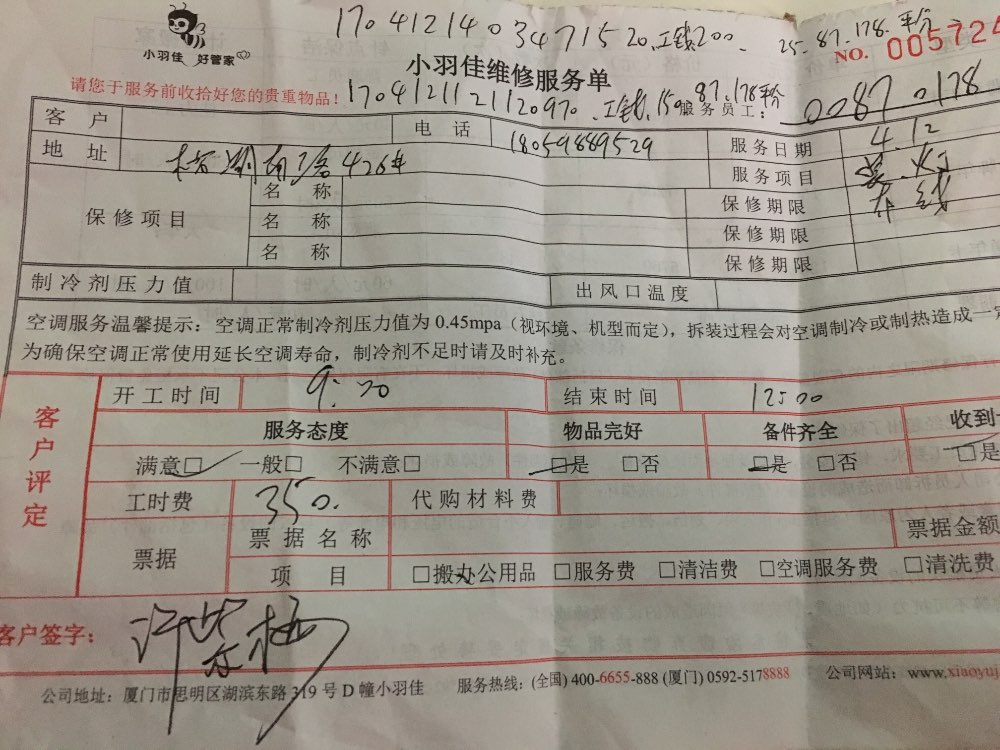 1704121403471520.工钱200.
25.87.178.平分
小羽佳 好管家
NO. 005724
小羽佳维修服务单
请您于服务前收拾好您的贵重物品！
1704121121120970.工钱150 87.178平分
服务员工： 0087.0178
客户 电话 18059889529 服务日期 4.12
地址 426# 服务项目
保修项目 名称 保修期限
名称 保修期限
名称 保修期限
制冷剂压力值 出风口温度
空调服务温馨提示：空调正常制冷剂压力值为0.45mpa（视环境、机型而定），拆装过程会对空调制冷或制热造成一定
为确保空调正常使用延长空调寿命，制冷剂不足时请及时补充。
客户评定
开工时间 9:20 结束时间 12:00
服务态度 物品完好 备件齐全 收到
满意□ 一般□ 不满意□ □是 □否 □是 □否 □是
工时费 350. 代购材料费
票据 票据名称 票据金额
项目 □搬办公用品 □服务费 □清洁费 □空调服务费 □清洗费
客户签字：
公司地址：厦门市思明区湖滨东路319号D幢小羽佳 服务热线：(全国) 400-6655-888 (厦门) 0592-5178888 公司网站：www.xiaoyuj